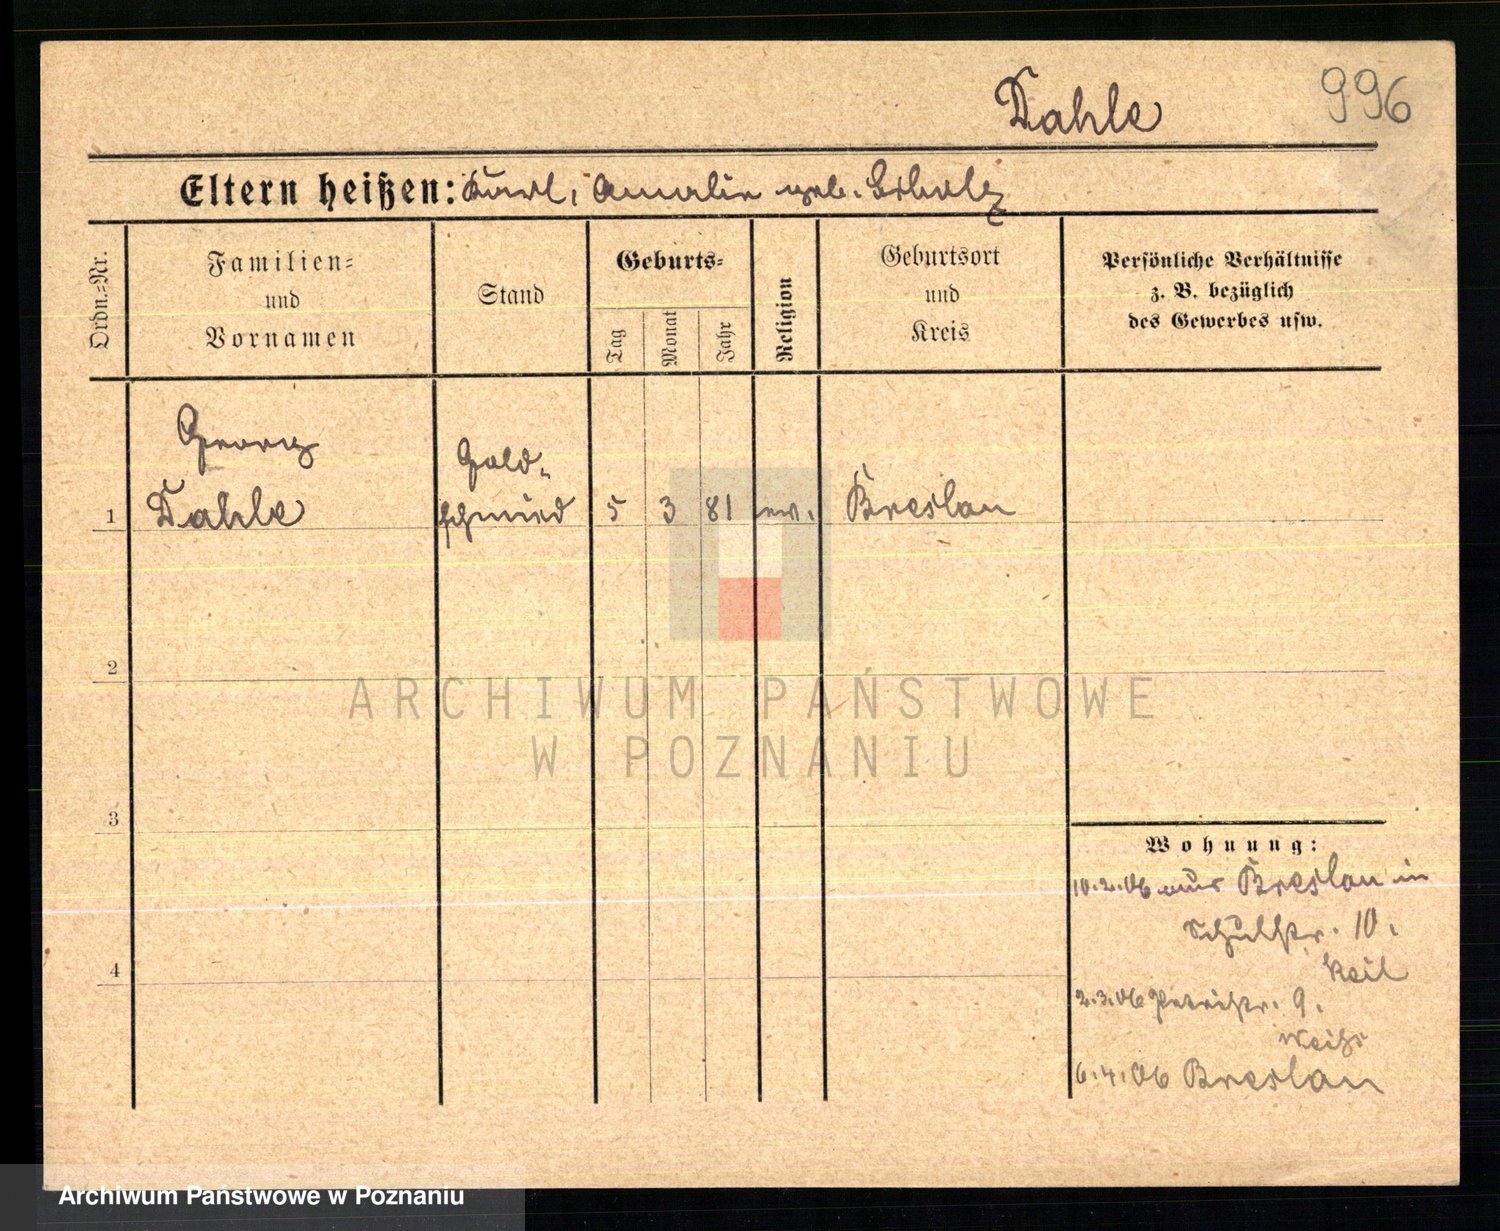 Dahle
996
Eltern heißen: Karl, Amalie geb. Scholz
Ordn.=Nr.
Familien= und Vornamen
Stand
Geburts=
Tag
Monat
Jahr
Religion
Geburtsort und Kreis
Persönliche Verhältnisse
z. B. bezüglich
des Gewerbes usw.
1
Georg
Dahle
Gold-
schmied
5
3
81
ev.
Breslau
2
3
4
Wohnung:
10.2.06 aus Breslau in
Schulstr. 10.
Keil
2.3.06 Petristr. 9.
6.4.06 Breslau
ARCHIWUM PAŃSTWOWE
W POZNANIU
Archiwum Państwowe w Poznaniu